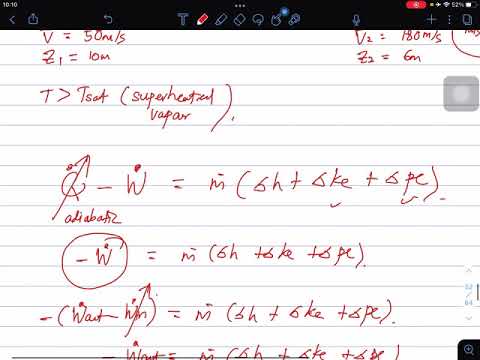 10:10
52%
V = 50m/s
V2 = 180m/s
Z1 = 10m
Z2 = 6m
T > Tsat (superheated vapour).
Q̇ - Ẇ = ṁ (Δh + Δke + Δpe).
adiabatic
- Ẇ = ṁ (Δh + Δke + Δpe).
- (Ẇout - Ẇin) = ṁ (Δh + Δke + Δpe).
- Ẇout = ṁ (Δh + Δke + Δpe)
52
/
64